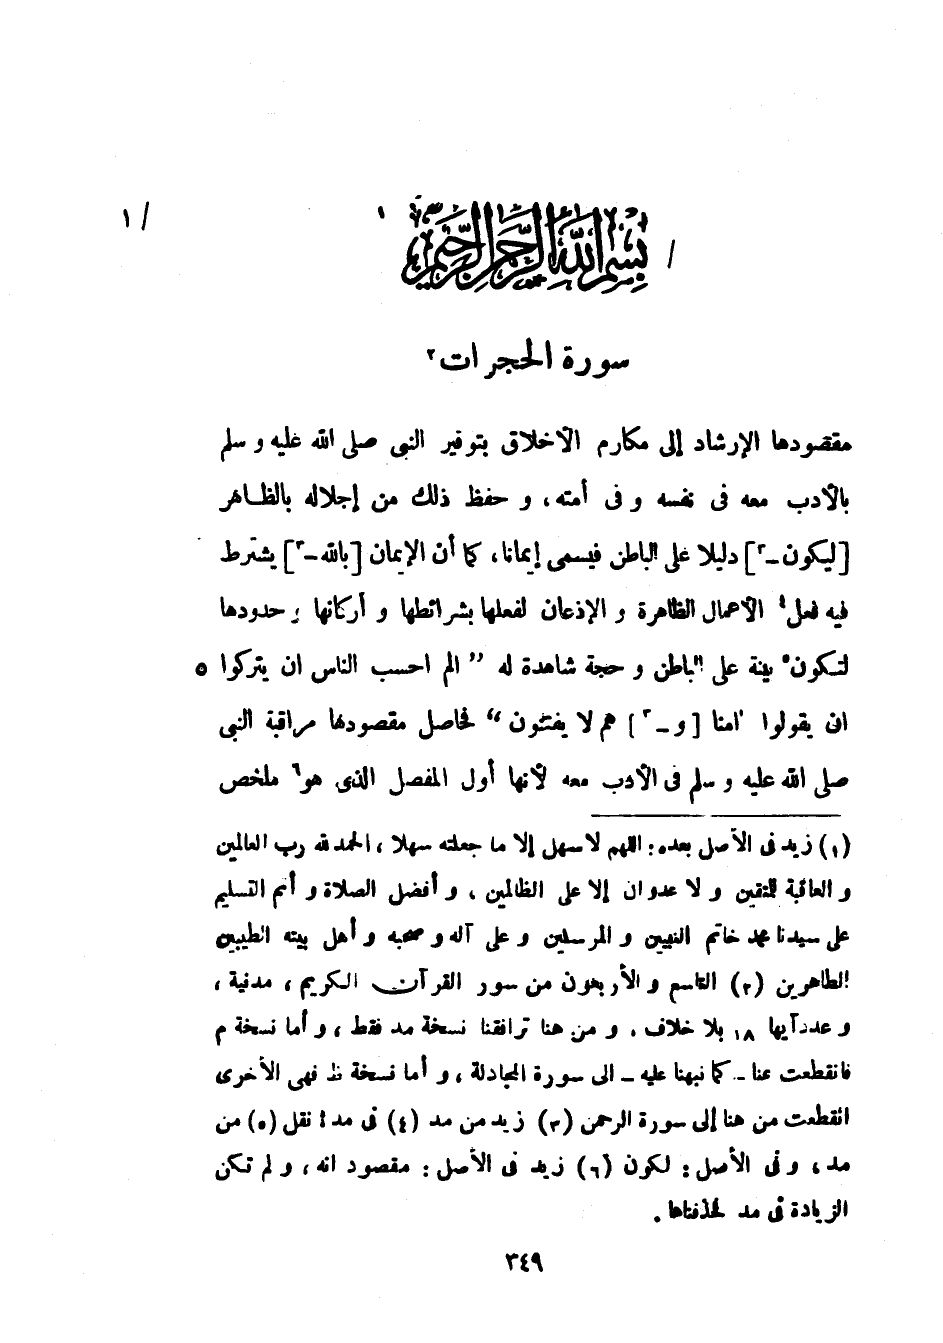 / بسم الله الرحمن الرحيم ١ / ١
سورة الحجرات ٢
مقصودها الإرشاد إلى مكارم الأخلاق بتوقير النبى صلى الله عليه و سلم
بالأدب معه فى نفسه و فى أمته، و حفظ ذلك من إجلاله بالظاهر
[ليكون -٣] دليلا على الباطن فيسمى إيمانا، كما أن الإيمان [بالله -٣] يشترط
فيه فعل٤ الأعمال الظاهرة و الإذعان لفعلها بشرائطها و أركانها و حدودها
لتكون٥ بينة على الباطن و حجة شاهدة له " الم احسب الناس ان يتركوا ٥
ان يقولوا امنا [و -٣] هم لا يفتنون " فحاصل مقصودها مراقبة النبى
صلى الله عليه و سلم فى الأدب معه لأنها أول المفصل الذى هو٦ ملخص
(١) زيد فى الأصل بعده: اللهم لا سهل إلا ما جعلته سهلا، الحمد لله رب العالمين
و العاقبة للمتقين و لا عدوان إلا على الظالمين، و أفضل الصلاة و أتم التسليم
على سيدنا محمد خاتم النبيين و المرسلين و على آله و صحبه و أهل بيته الطيبين
الطاهرين (٢) التاسع و الأربعون من سور القرآن الكريم، مدنية،
و عدد آيها ١٨ بلا خلاف. و من هنا ترافقنا نسخة مد فقط، و أما نسخة م
فانقطعت عنا - كما نبهنا عليه - الى سورة المجادلة، و أما نسخة ظ فهى الأخرى
انقطعت من هنا إلى سورة الرحمن (٣) زيد من مد (٤) فى مد: نقل (٥) من
مد، و فى الأصل: لكون (٦) زيد فى الأصل: مقصود انه، و لم تكن
الزيادة فى مد فحذفناها.
٣٤٩